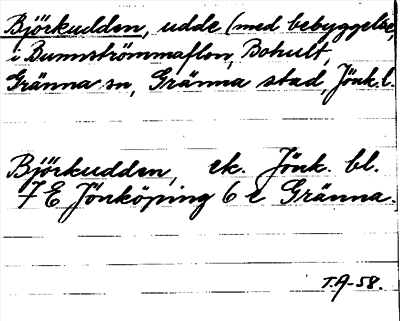 Björkudden, udde (med bebyggelse)
i Bunnströmmaflon, Bohult,
Gränna sn, Gränna stad, Jönk.l.
Björkudden, ek. Jönk. bl.
7 E Jönköping 6 e Gränna.
T.A-58.